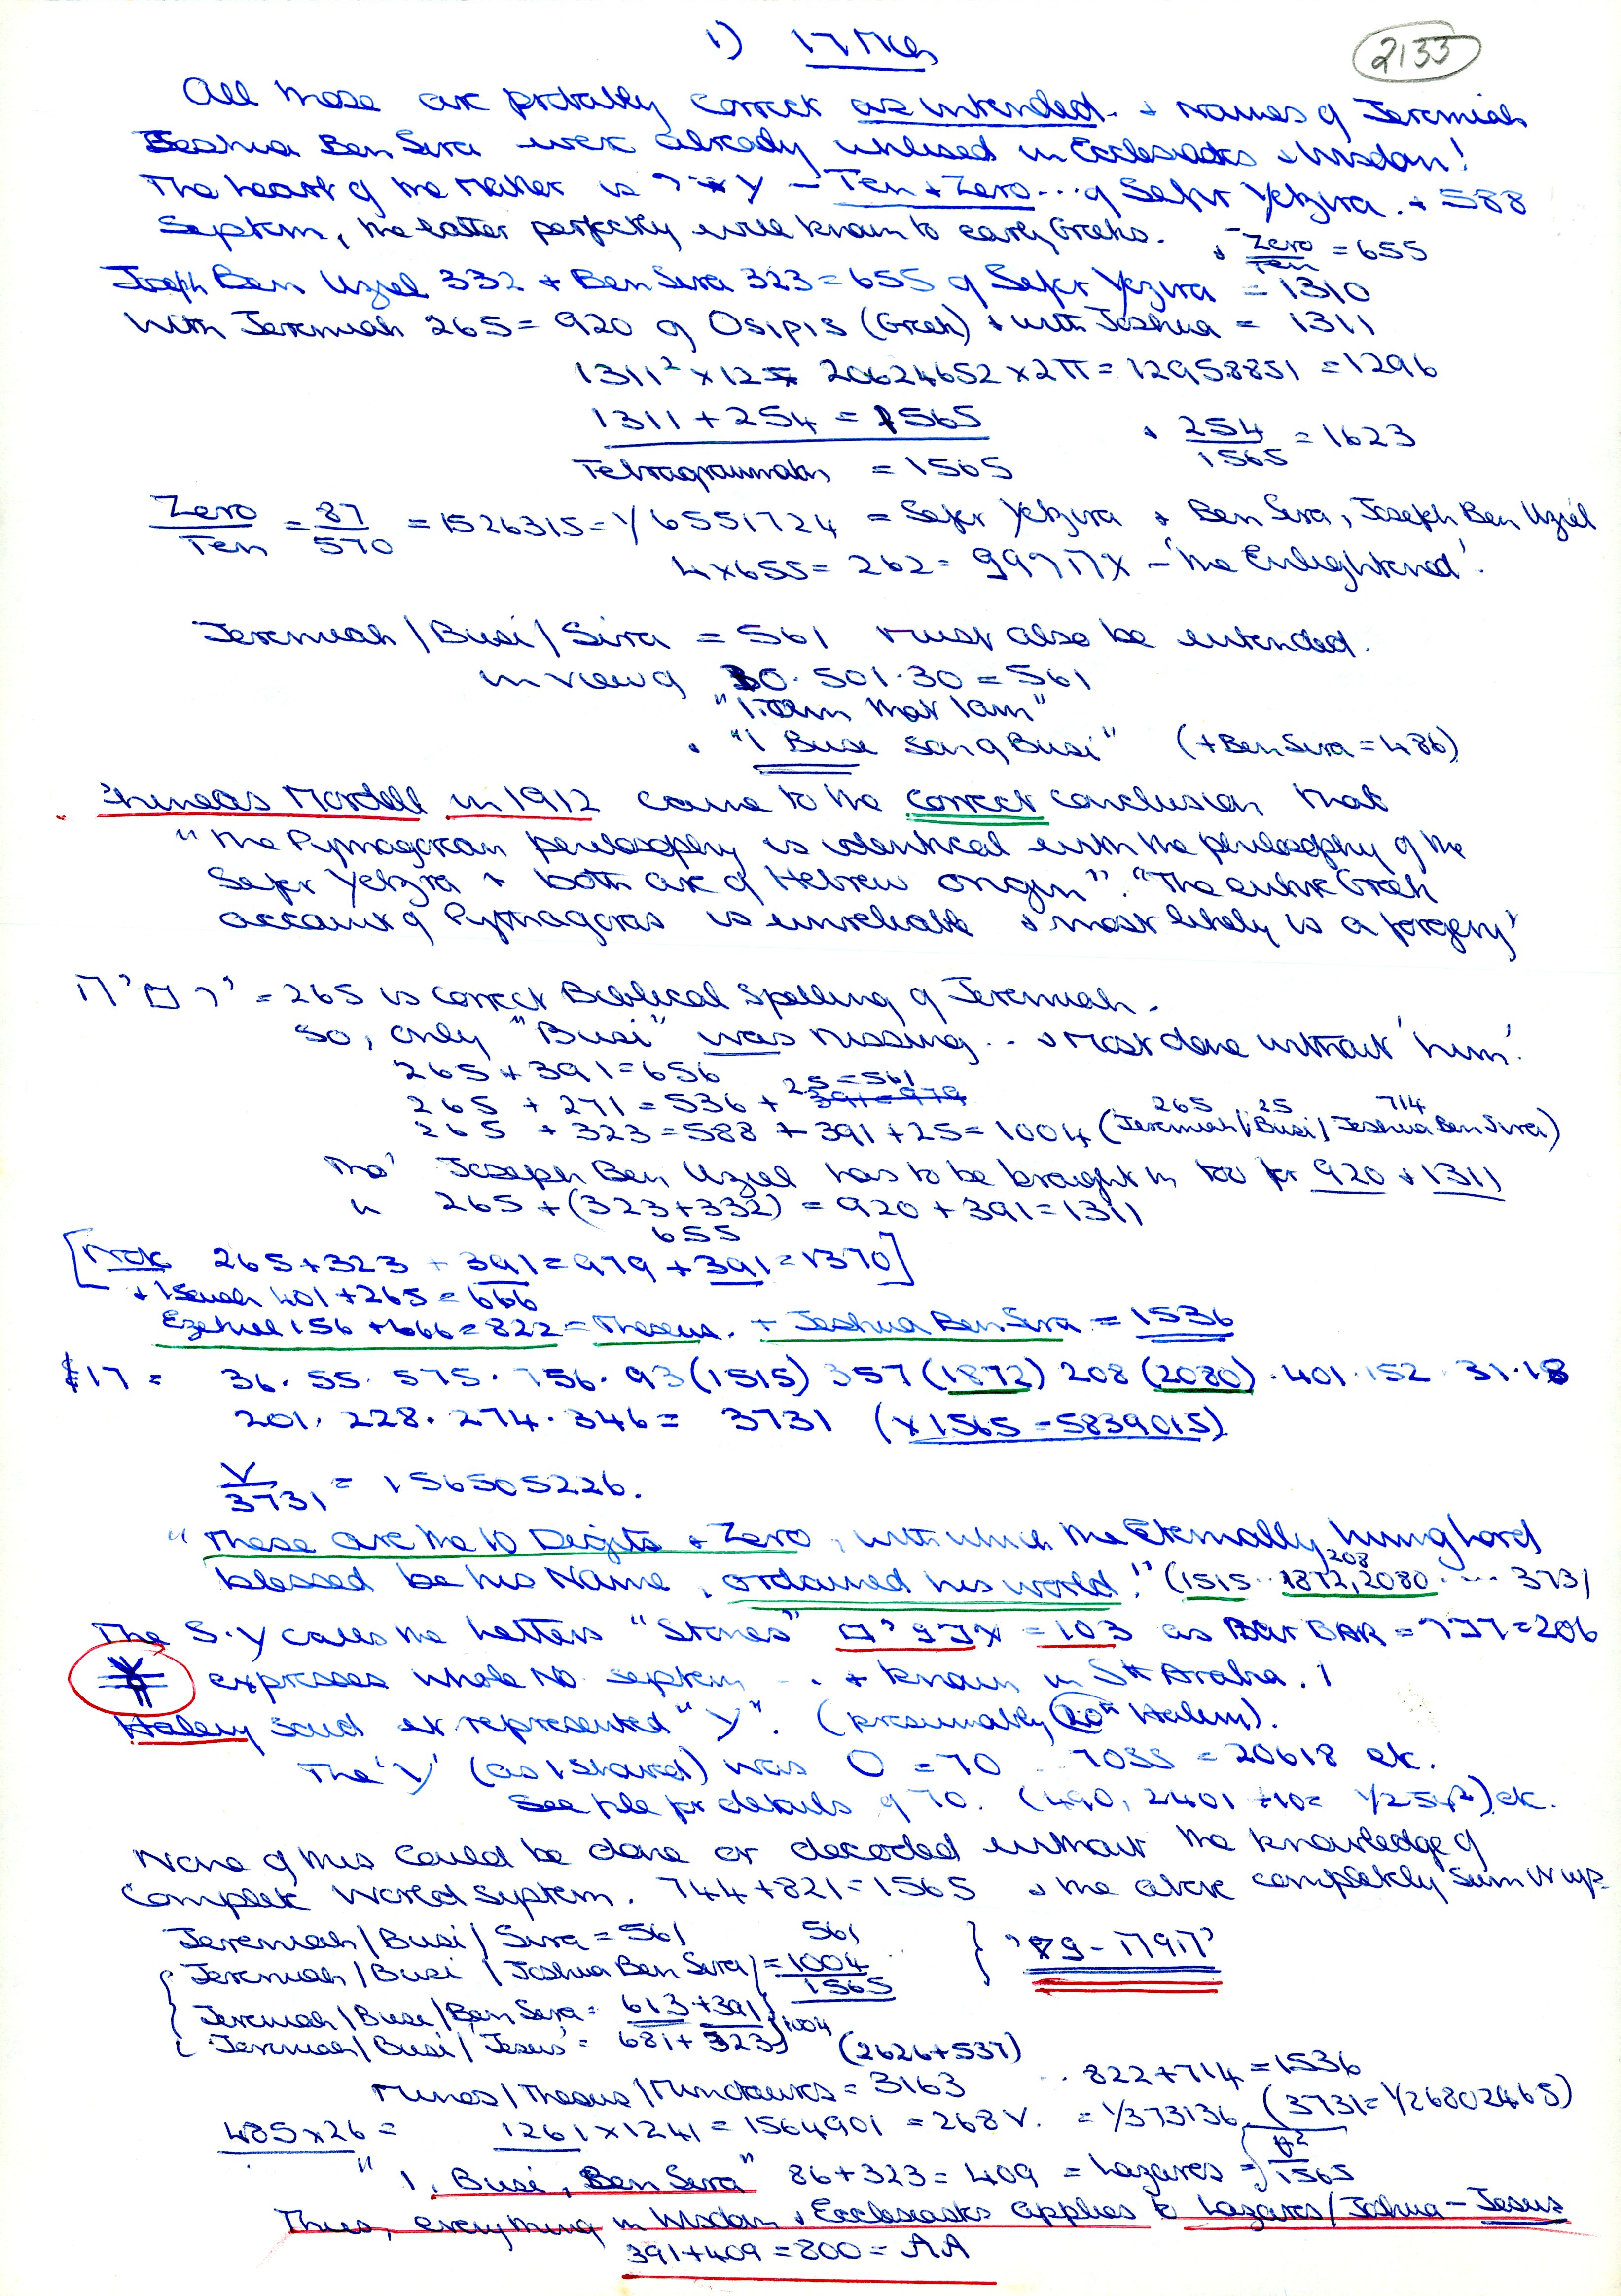 1) 17 Mch
2133
All these are probably correct as intended. + names of Jeremiah
Joshua Ben Sira were already utilised in Ecclesiastes + Wisdom!
The heart of the matter is – Ten + Zero... of Sefer Yetzira. + 588
Septem, the latter perfectly well known to early Greeks. + Zero/Ten = 655
Joseph Ben Uziel 332 + Ben Sira 323 = 655 of Sefer Yezira = 1310
With Jeremiah 265 = 920 of Osipis (Greek) + with Joshua = 1311
1311² x 12 = 20624652 x 2π = 12958851 = 1296
1311 + 254 = 1565 + 254/1565 = 1623
Tetragrammaton = 1565
Zero/Ten = 87/570 = 1526315 = 1/6551724 = Sefer Yetzira + Ben Sira, Joseph Ben Uziel
4 x 655 = 262 = – 'the Enlightened'.
Jeremiah / Busi / Sira = 561 must also be intended.
in view of 30. 501. 30 = 561
"I am that I am"
+ "I Busi son of Busi" (+ Ben Sira = 486)
Phineas Mordell in 1912 came to the correct conclusion that
"the Pythagorean philosophy is identical with the philosophy of the
Sefer Yetzira + both are of Hebrew origin". "The entire Greek
account of Pythagoras is unreliable + most likely is a forgery"
= 265 is correct Biblical spelling of Jeremiah.
So, only "Busi" was missing .. + Most done without 'him'.
265 + 391 = 656
265 + 271 = 536 + 25 = 561
265 + 323 = 588 + 391 + 25 = 1004 (Jeremiah 265 / Busi 25 / Joshua Ben Sira 714)
Tho' Joseph Ben Uziel has to be brought in too for 920 + 1311
in 265 + (323 + 332) = 920 + 391 = 1311
655
[Note 265 + 323 + 391 = 979 + 391 = 1370]
+ Isaiah 401 + 265 = 666
Ezekiel 156 + 666 = 822 = Theseus. + Joshua Ben Sira = 1536
§17 = 36. 55. 575. 756. 93 (1515) 357 (1872) 208 (2080). 401. 152. 31. 18
201. 228. 274. 346 = 3731 (x 1565 = 5839015)
V/3731 = 156505226.
"These are the 10 Digits + Zero, with which the Eternally living Lord
blessed be his Name, ordained his world." (1515 .. 1872, 208 2080 .... 3731
The S.Y calls the letters "Stones" = 103 as BAR = = 206
expresses whole No. septem ... + known in Sth Arabia. !
Halevy said it represented "Y". (presumably 20th Halem).
The 'V' (as I shared) was O = 70 .. 7055 = 20618 etc.
See file for details of 70. (490, 2401 ÷ 10 =
None of this could be done or decoded without the knowledge of
Complete World System. 744 + 821 = 1565 + the above completely sum it up.
Jeremiah / Busi / Sira = 561 561
Jeremiah / Busi / Joshua Ben Sira = 1004
1565
Jeremiah / Busi / Ben Sira = 613 + 391
Jeremiah / Busi / 'Jesus' = 681 + 323 } 1004
(2626 + 537)
Minos / Theseus / Minotaurus = 3163 .. 822 + 714 = 1536
485 x 26 = 1261 x 1241 = 1564901 = 268 V. = 1/373136 (3731 = 1/26802465)
"I, Busi, Ben Sira" 86 + 323 = 409 = Lazarus =
1565
Thus, everything in Wisdom + Ecclesiastes applies to Lazarus / Joshua – Jesus
391 + 409 = 800 = AA